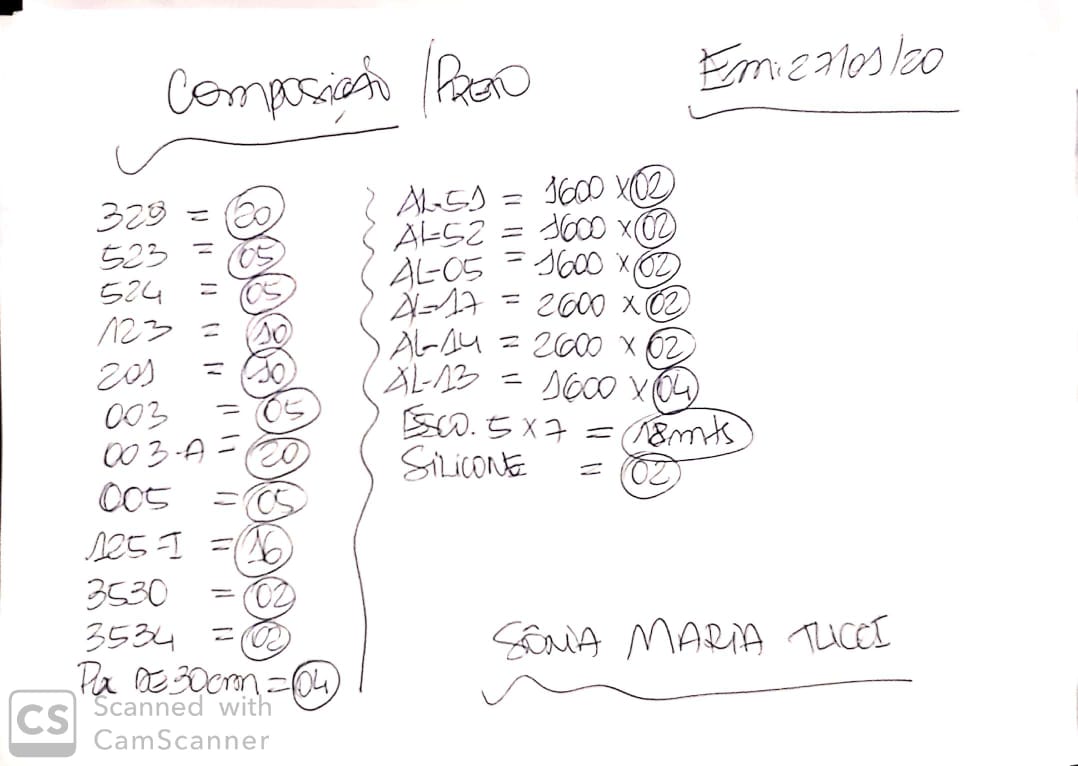 Composição / PRETO
Em: 27/01/20
329 = 20
523 = 05
524 = 05
123 = 10
201 = 10
003 = 05
003-A = 20
005 = 05
125-I = 16
3530 = 02
3534 = 02
DE 30cm = 04
AL-51 = 1600 x 02
AL-52 = 1600 x 02
AL-05 = 1600 x 02
AL-17 = 2600 x 02
AL-14 = 2600 x 02
AL-13 = 1600 x 04
ESCO. 5 x 7 = 18mts
SILICONE = 02
SÔNIA MARIA TUCCI
CS Scanned with
CamScanner